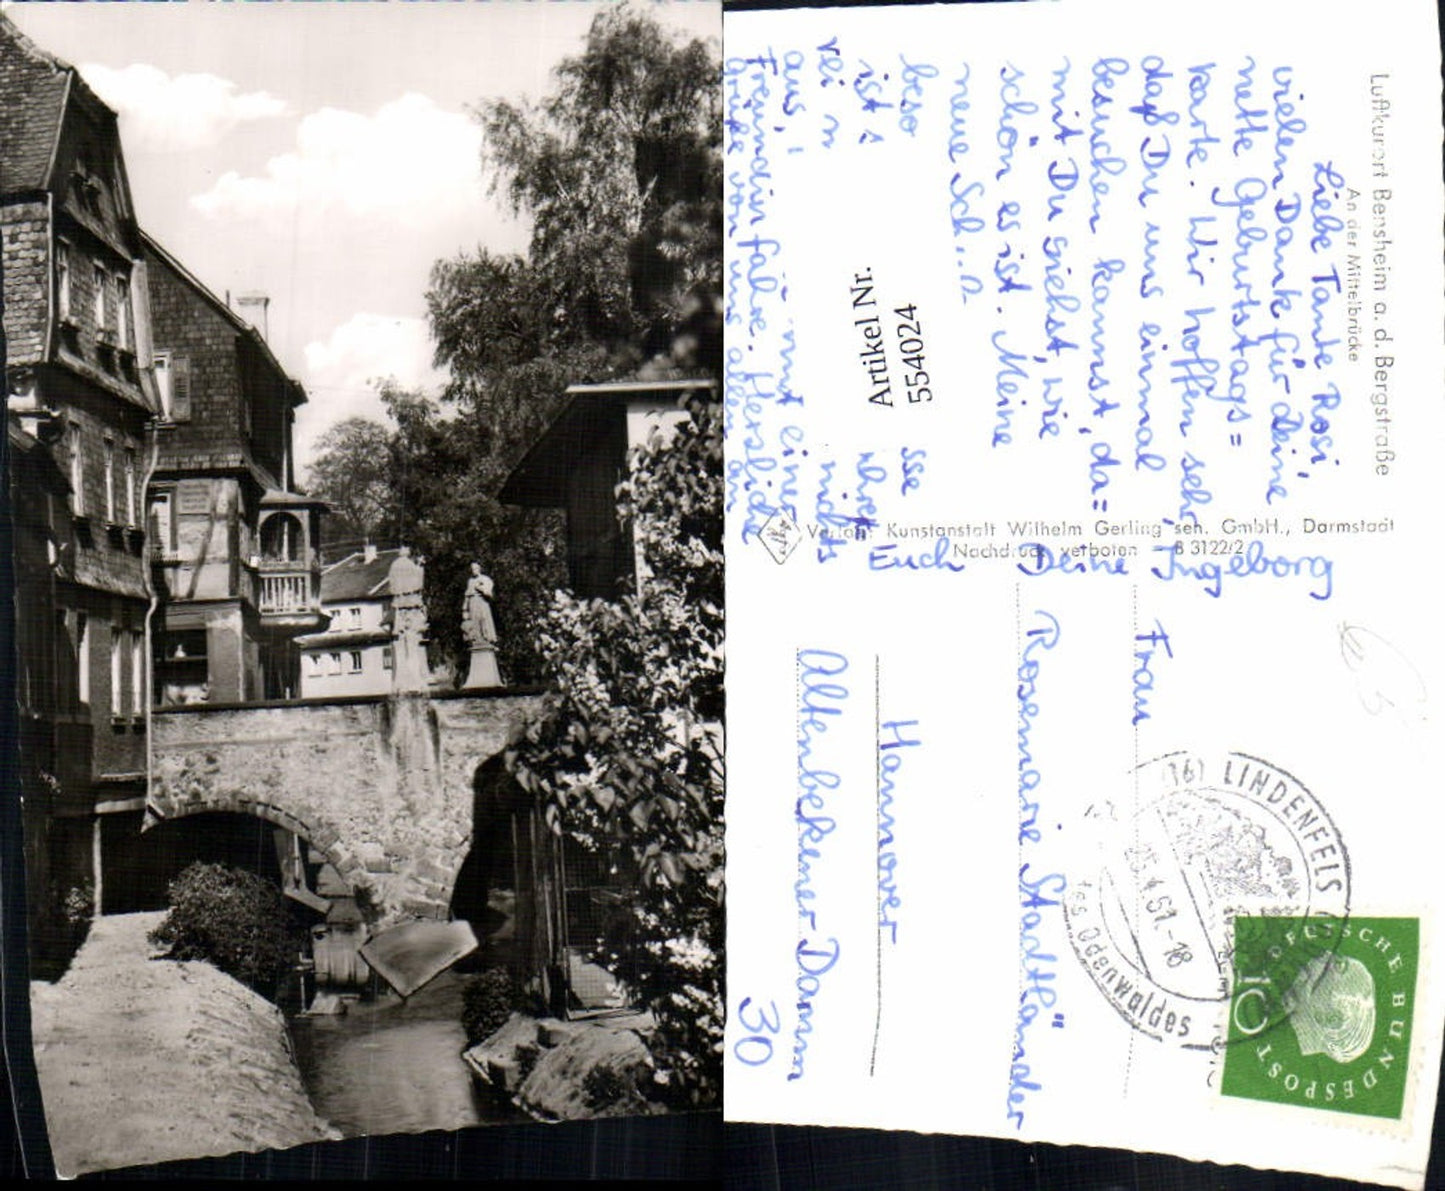 Luftkurort Bensheim a. d. Bergstraße
An der Mittelbrücke
Liebe Tante Rosi,
vielen Dank für Deine
nette Geburtstags=
karte. Wir hoffen sehr,
daß Du uns einmal
besuchen kannst, da=
mit Du siehst, wie
schön es ist. Meine
neue Sch
beso sse
ist s
rei n nichts
aus, mit einer
Freundin fahre. Herzliche
Grüße von uns allen an
Euch Deine Ingeborg
Artikel Nr.
554024
Verlag: Kunstanstalt Wilhelm Gerling sen. GmbH., Darmstadt
Nachdruck verboten - B 3122/2
Frau
Rosemarie Stadtländer
Hannover
Altenbekener Damm
30
(16) LINDENFELS
des Odenwaldes
-18
DEUTSCHE BUNDESPOST
10